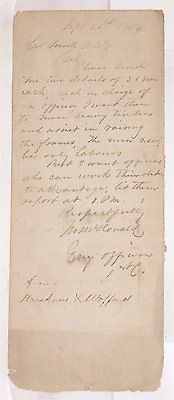 Sept 21st 1864
Col Sorrell A.A.G
Col
Please send
me two details of 25 men
each, each in charge of
an officer I want them
to move heavy timbers
and assist in raising
the frames. The men need
be only labourers
But I want officers
who can work their details
to advantage, let them
report at 1 P.M.
Respectfully
McDonald
Eng officer
from